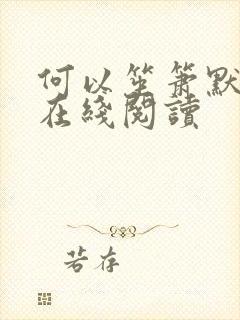 何以笙箫默
在綫閱讀
若存